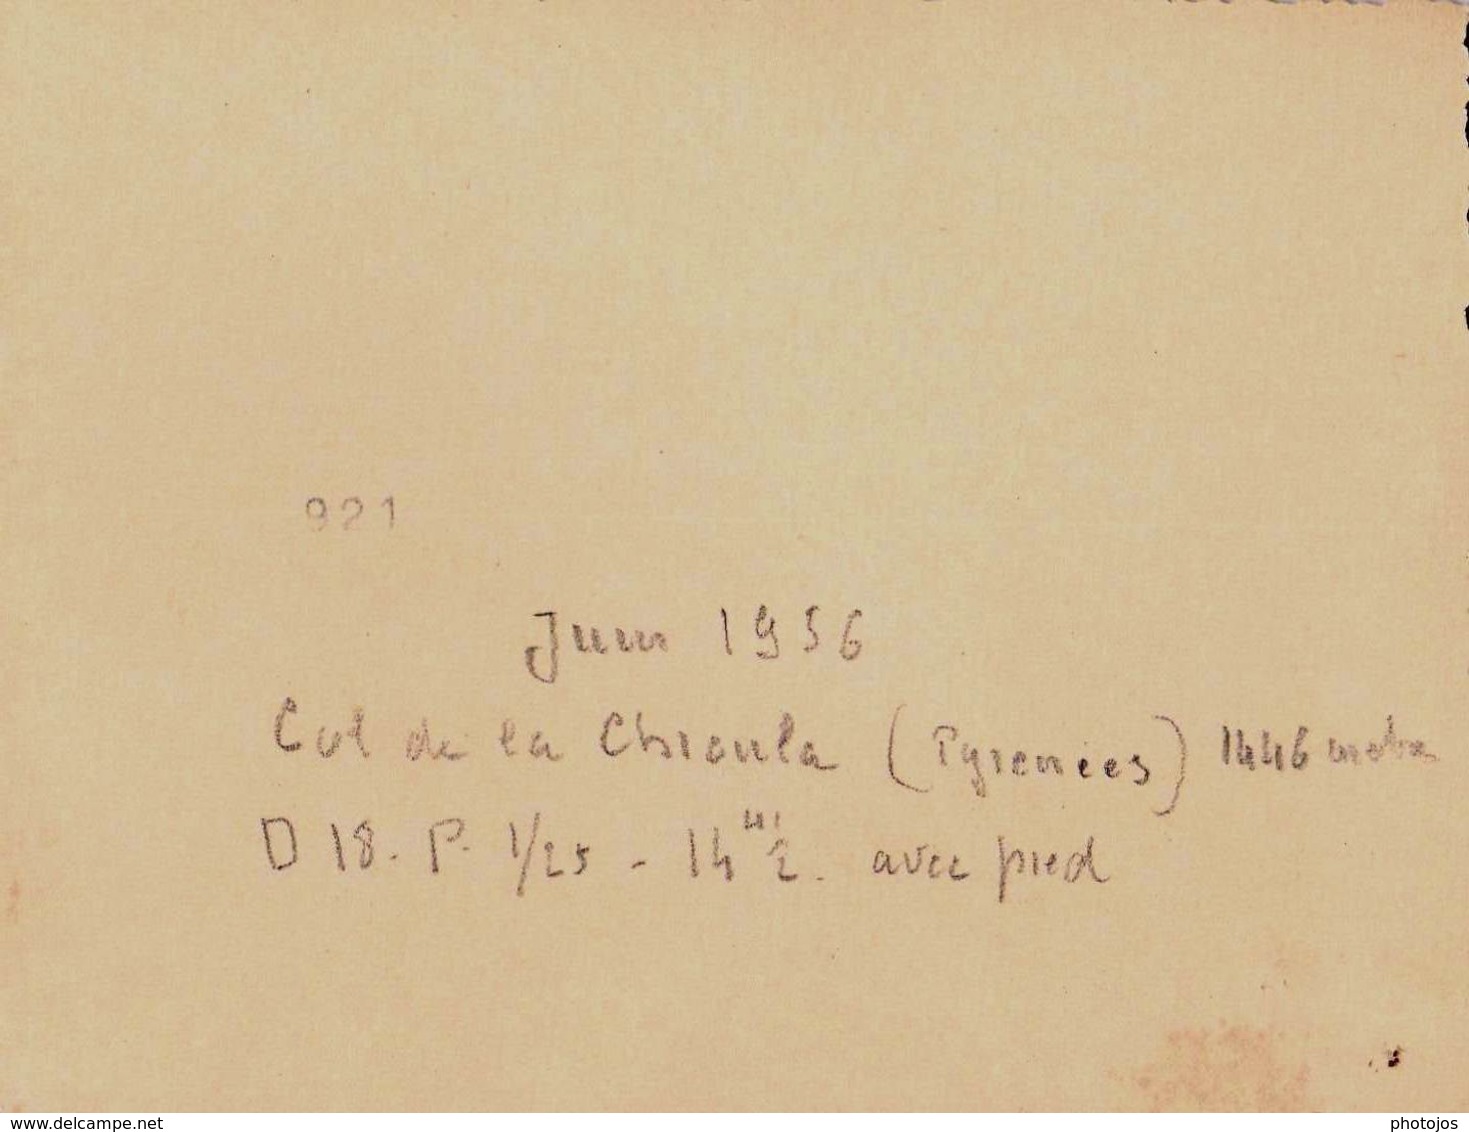 921
Juin 1956
Col de la Chioula (Pyrenées) 1446 metres
D 18. P. 1/25 - 14 H 1/2. avec pied
www.delcampe.net
photojos